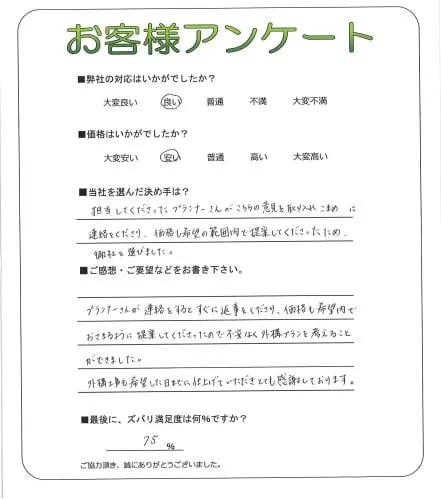 お客様アンケート
■弊社の対応はいかがでしたか?
大変良い 良い 普通 不満 大変不満
■価格はいかがでしたか?
大変安い 安い 普通 高い 大変高い
■当社を選んだ決め手は?
担当してくださったプランナーさんがこちらの意見を取り入れこまめに
連絡をくださり、価格も希望の範囲内で提案してくださったため、
御社を選びました。
■ご感想・ご要望などをお書き下さい。
プランナーさんが連絡をするとすぐに返事をくださり、価格も希望内で
おさまるように提案してくださったので不安なく外構プランを考えること
ができました。
外構工事も希望した日までに仕上げていただきとても感謝しております。
■最後に、ズバリ満足度は何%ですか?
75 %
ご協力頂き、誠にありがとうございました。